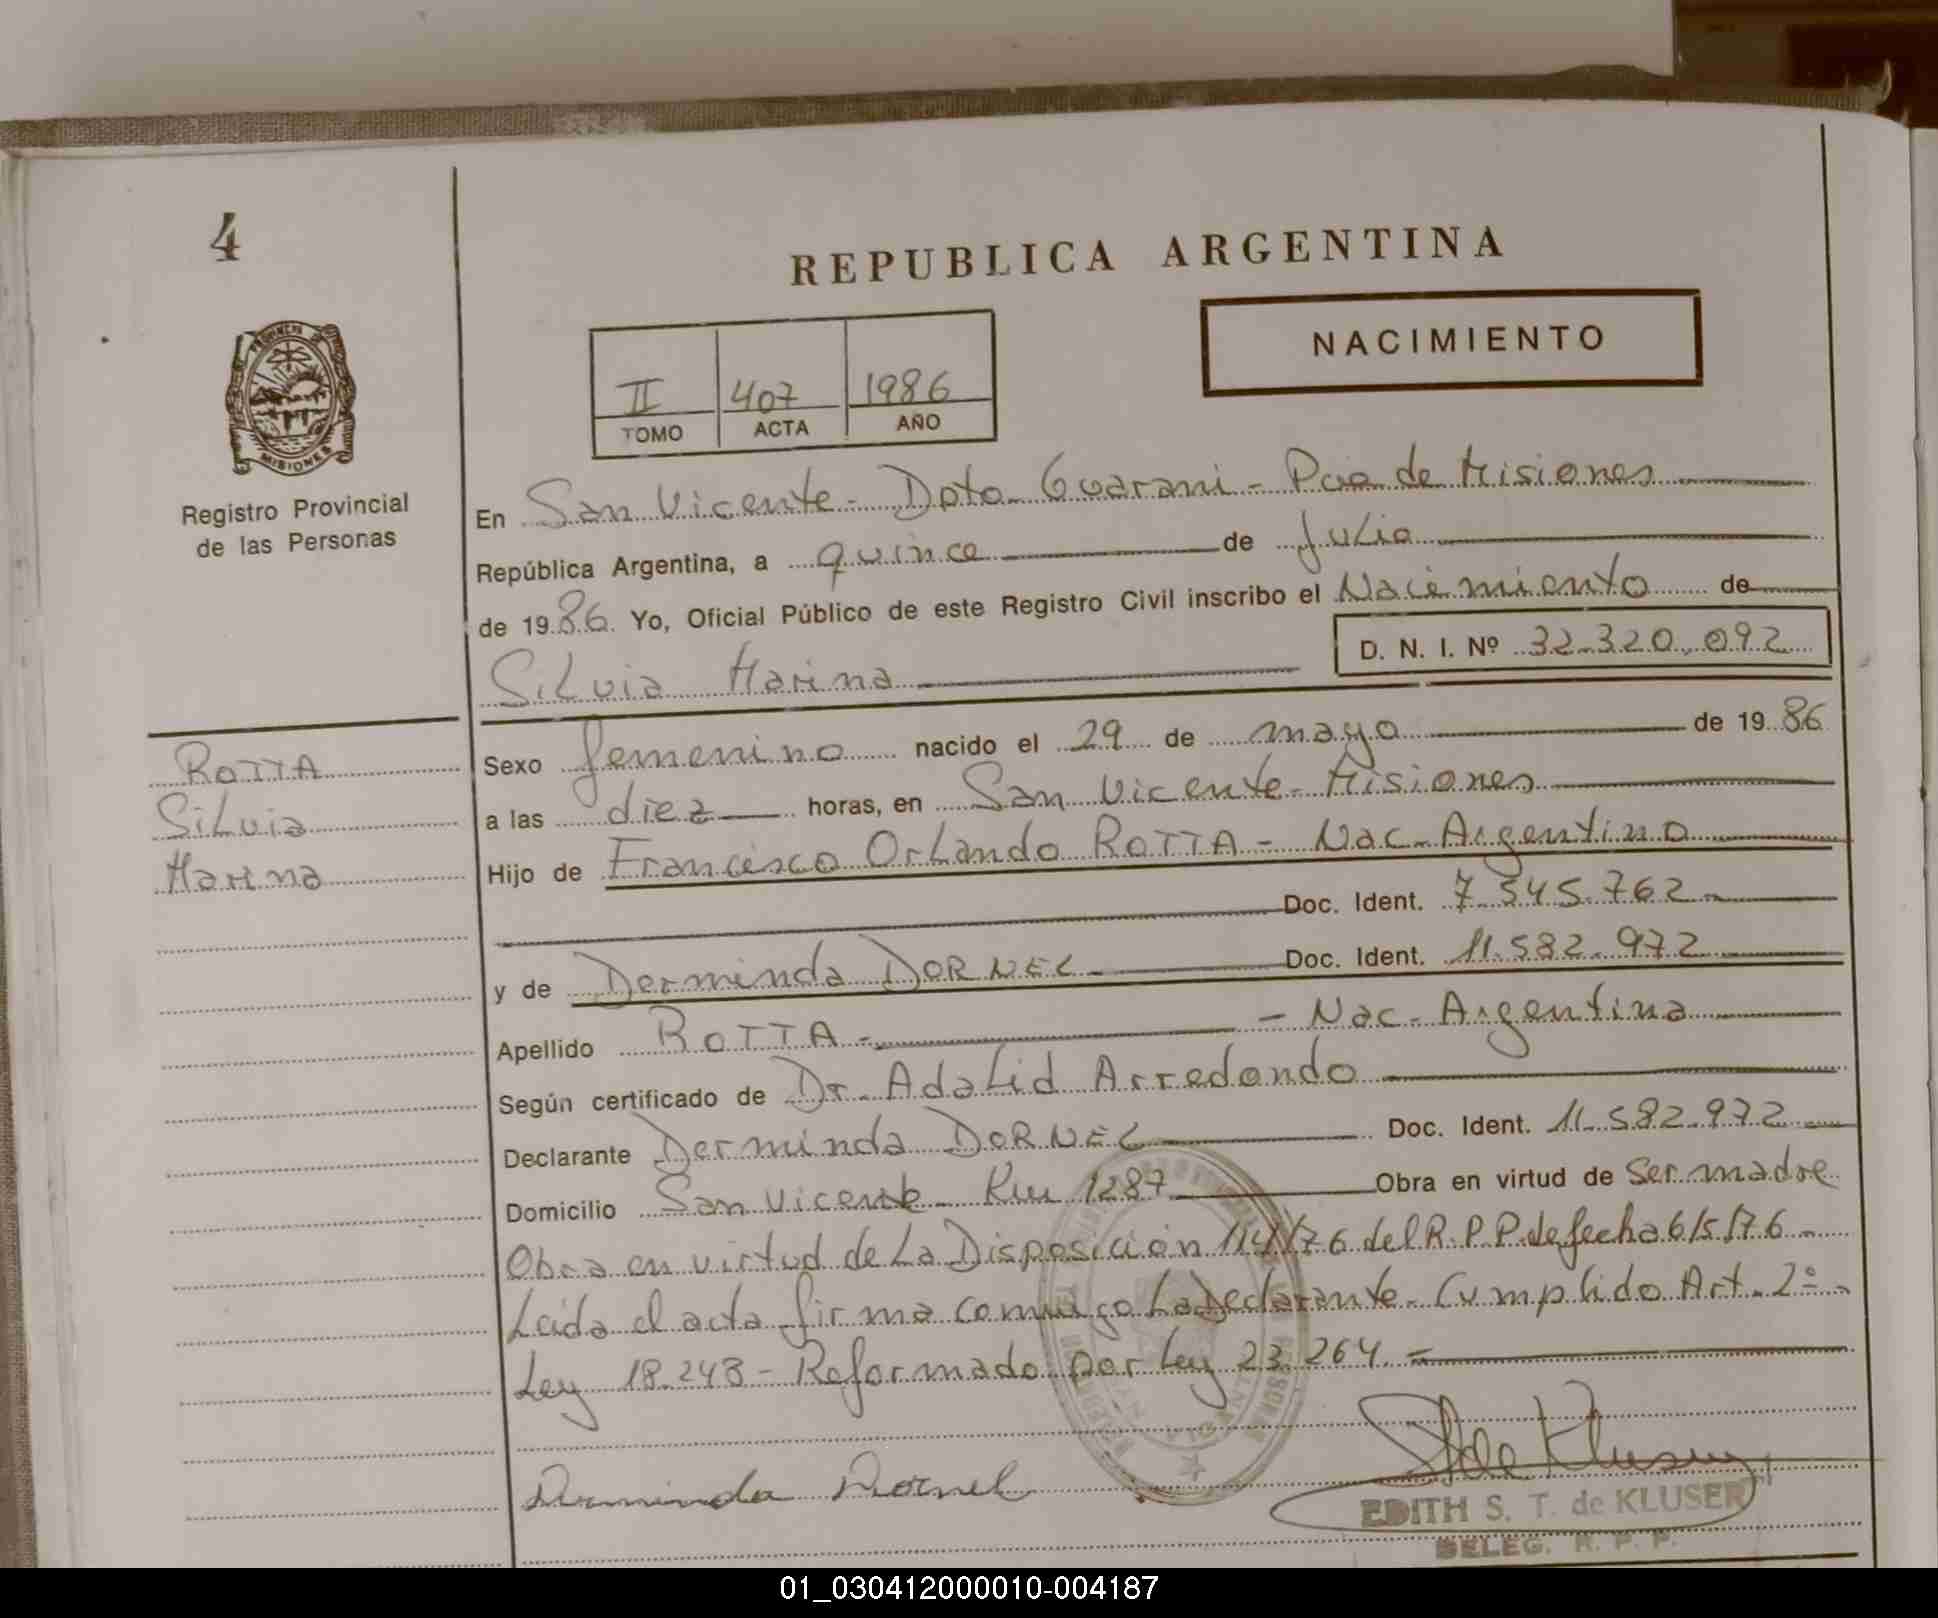 4
REPUBLICA ARGENTINA
NACIMIENTO
II 407 1986
TOMO ACTA AÑO
PROVINCIA DE
MISIONES
Registro Provincial
de las Personas
En San Vicente - Dpto Guarani - Pcia de Misiones
República Argentina, a quince de Julio
de 1986. Yo, Oficial Público de este Registro Civil inscribo el Nacimiento de
D. N. I. Nº 32.320.092
Silvia Marina
ROTTA
Silvia
Marina
Sexo femenino nacido el 29 de mayo de 1986
a las diez horas, en San Vicente - Misiones
Hijo de Francisco Orlando ROTTA - Nac. Argentino
Doc. Ident. 7.545.762
y de Derminda DORNEL - Doc. Ident. 11.582.972
Apellido ROTTA - - Nac. Argentina
Según certificado de Dr. Adalid Arredondo
Declarante Derminda DORNEL Doc. Ident. 11.582.972
Domicilio San Vicente - Km 1287 Obra en virtud de ser madre
Obra en virtud de La Disposición 114/76 del R.P.P. de fecha 6/5/76 -
Leida el acta firma conmigo La Declarante - Cumplido Art. 2º -
Ley 18.248 - Reformado por Ley 23.264. =
Derminda Dornel
de Kluser
EDITH S. T. de KLUSER
DELEG. R. P. P.
01_030412000010-004187